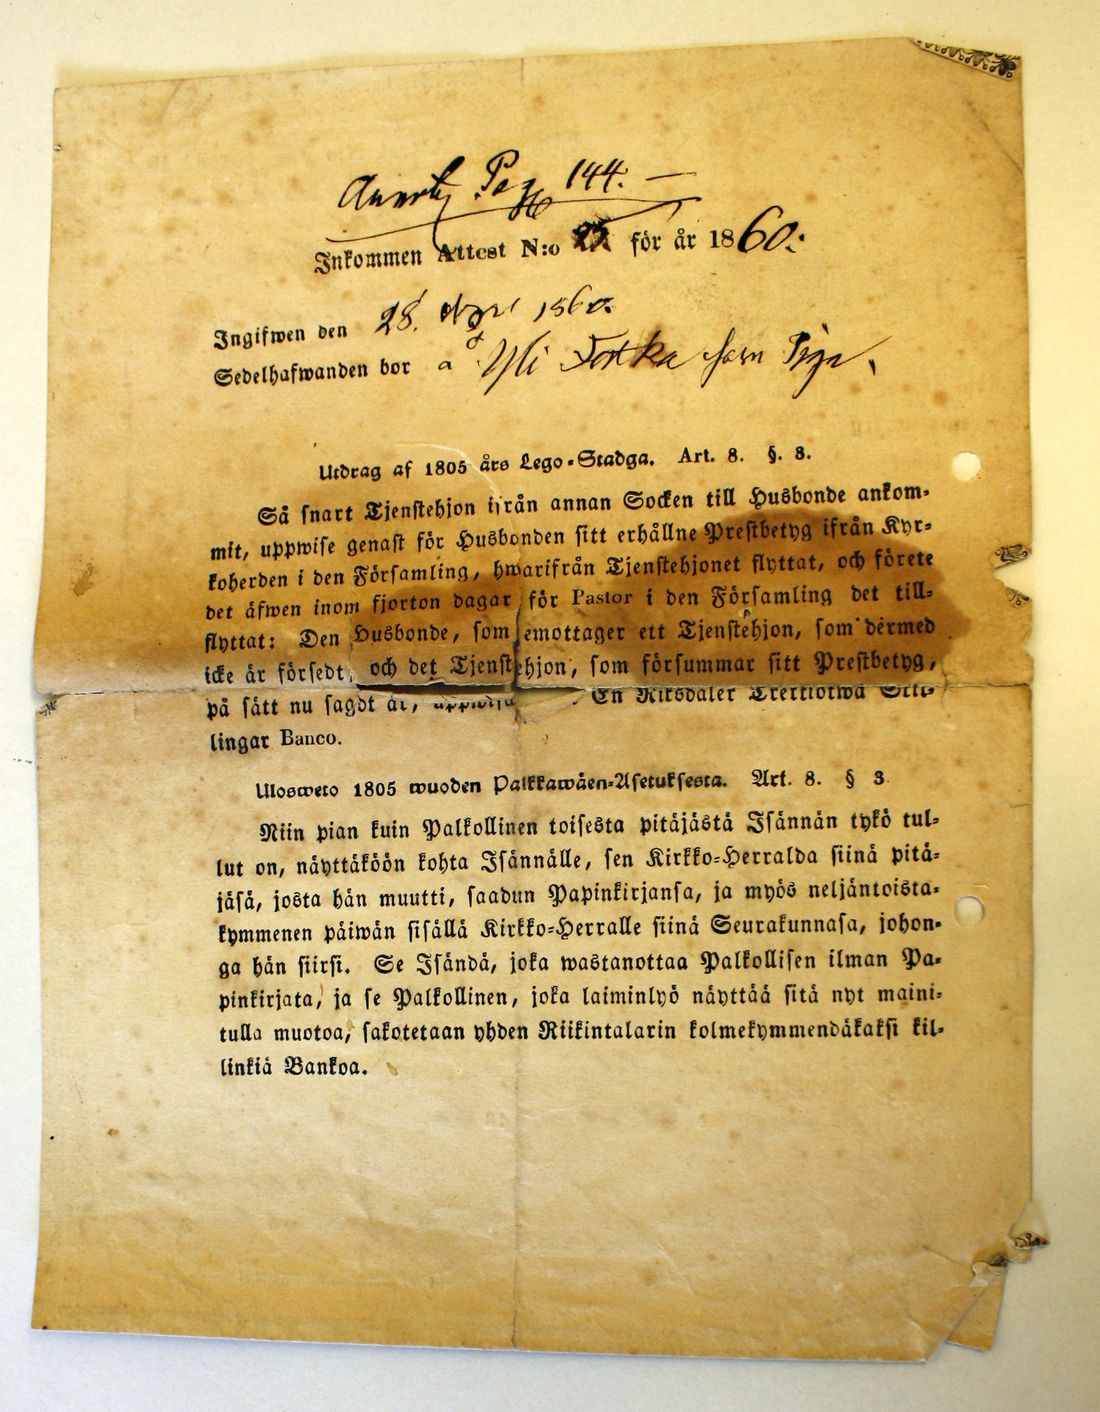 Pag 144. —
Inkommen Attest N:o 25 för år 1860.
Ingifwen den 28. 1860.
Sedelhafwanden bor å Yli som Piga
Utdrag af 1805 års Lego-Stadga. Art. 8. §. 3.
Så snart Tjenstehjon ifrån annan Socken till Husbonde ankom-
mit, uppwise genast för Husbonden sitt erhållne Prestbetyg ifrån Kyr-
koherden i den Församling, hwarifrån Tjenstehjonet flyttat, och förete
det äfwen inom fjorton dagar för Pastor i den Församling det till-
flyttat: Den Husbonde, som emottager ett Tjenstehjon, som dermed
icke är försedt, och det Tjenstehjon, som försummar sitt Prestbetyg,
på sätt nu sagdt är, uppwisa En Riksdaler Trettiotwå Skil-
lingar Banco.
Ulosweto 1805 wuoden Palkkawäen-Asetuksesta. Art. 8. § 3
Niin pian kuin Palkollinen toisesta pitäjästä Isännän tykö tul-
lut on, näyttäköön kohta Isännälle, sen Kirkko-Herralda siinä pitä-
jäsä, josta hän muutti, saadun Papinkirjansa, ja myös neljäntoista-
kymmenen päiwän sisällä Kirkko-Herralle siinä Seurakunnasa, johon-
ga hän siirsi. Se Isändä, joka wastanottaa Palkollisen ilman Pa-
pinkirjata, ja se Palkollinen, joka laiminlyö näyttää sitä nyt maini-
tulla muotoa, sakotetaan yhden Riikintalarin kolmekymmendäkaksi kil-
linkiä Bankoa.